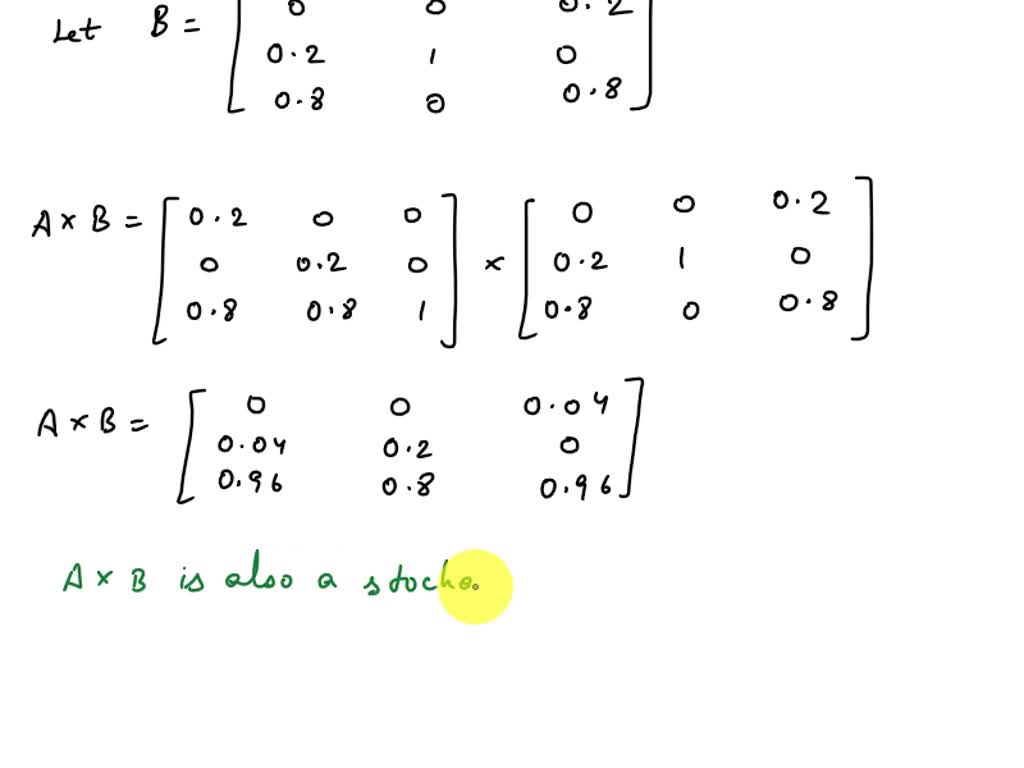 0 0 0.2
Let B =
0.2 1 0
0.8 0 0.8
A × B = [ 0.2 0 0 ] × [ 0 0 0.2 ]
0 0.2 0 0.2 1 0
0.8 0.8 1 0.8 0 0.8
A × B = [ 0 0 0.04 ]
0.04 0.2 0
0.96 0.8 0.96
A × B is also a stocha